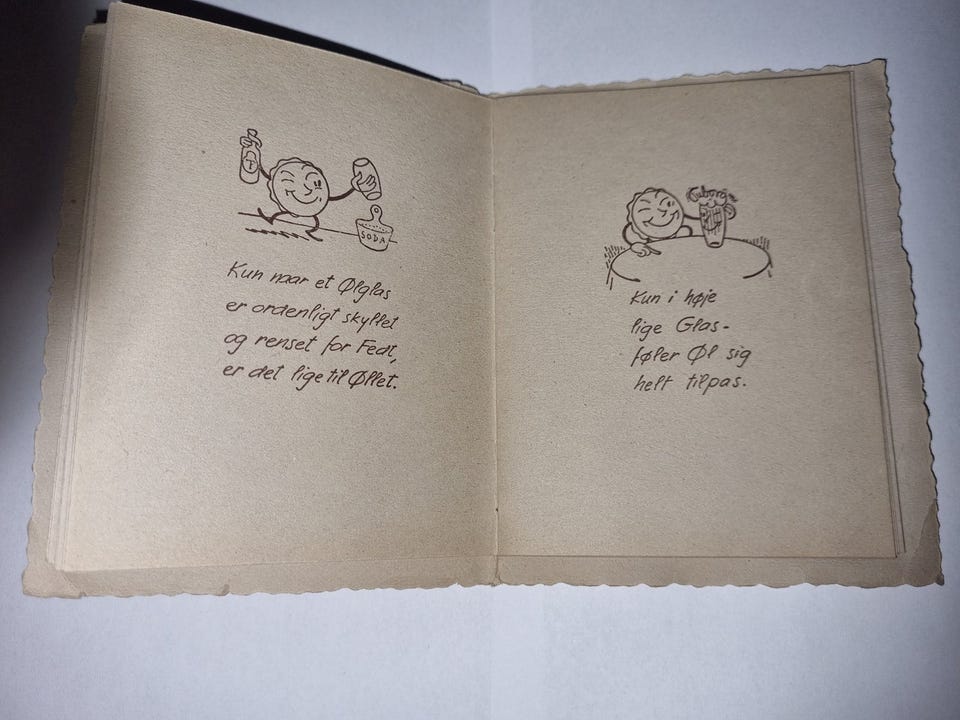 T
SODA
Kun naar et Ølglas
er ordenligt skyllet
og renset for Fedt,
er det lige til Øllet.
Tuborg
Kun i høje
lige Glas-
føler Øl sig
helt tilpas.